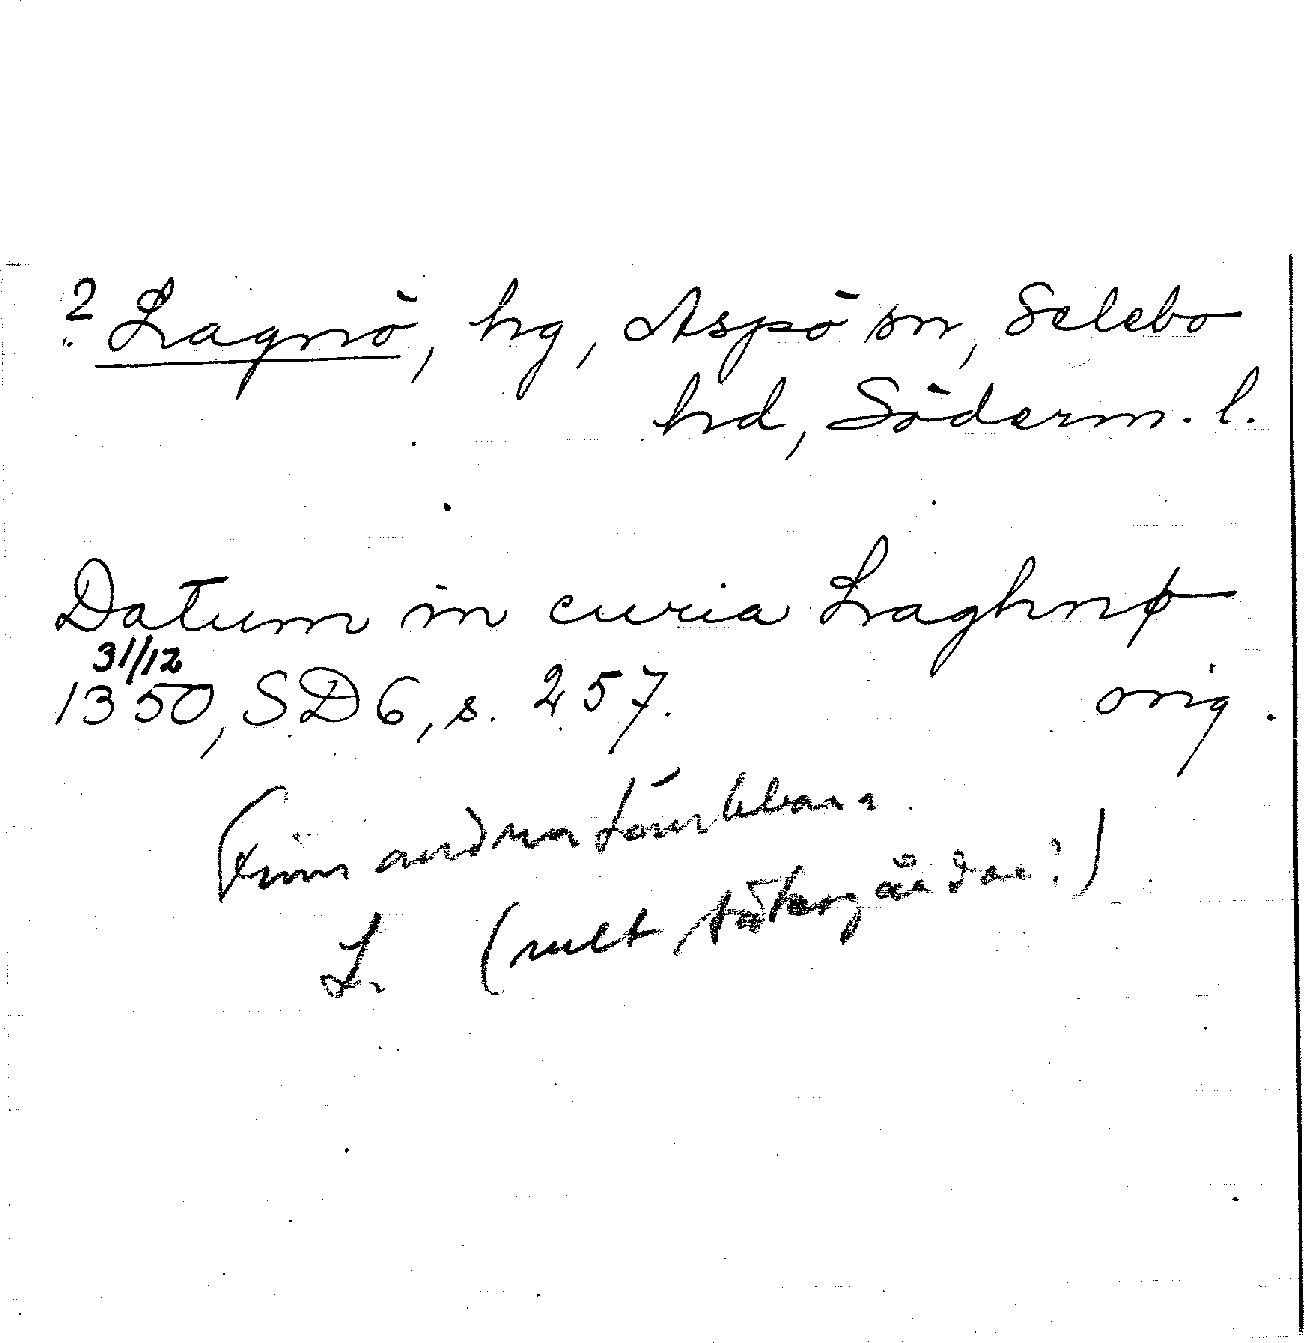 ? Lagnö, hg, Aspö sn, Selebo
hd, Söderm. l.
Datum in curia Laghnø
31/12
1350, SD 6, s. 257. orig.
(Finns andra tänkbara
L. (mest sätesgårdar!)